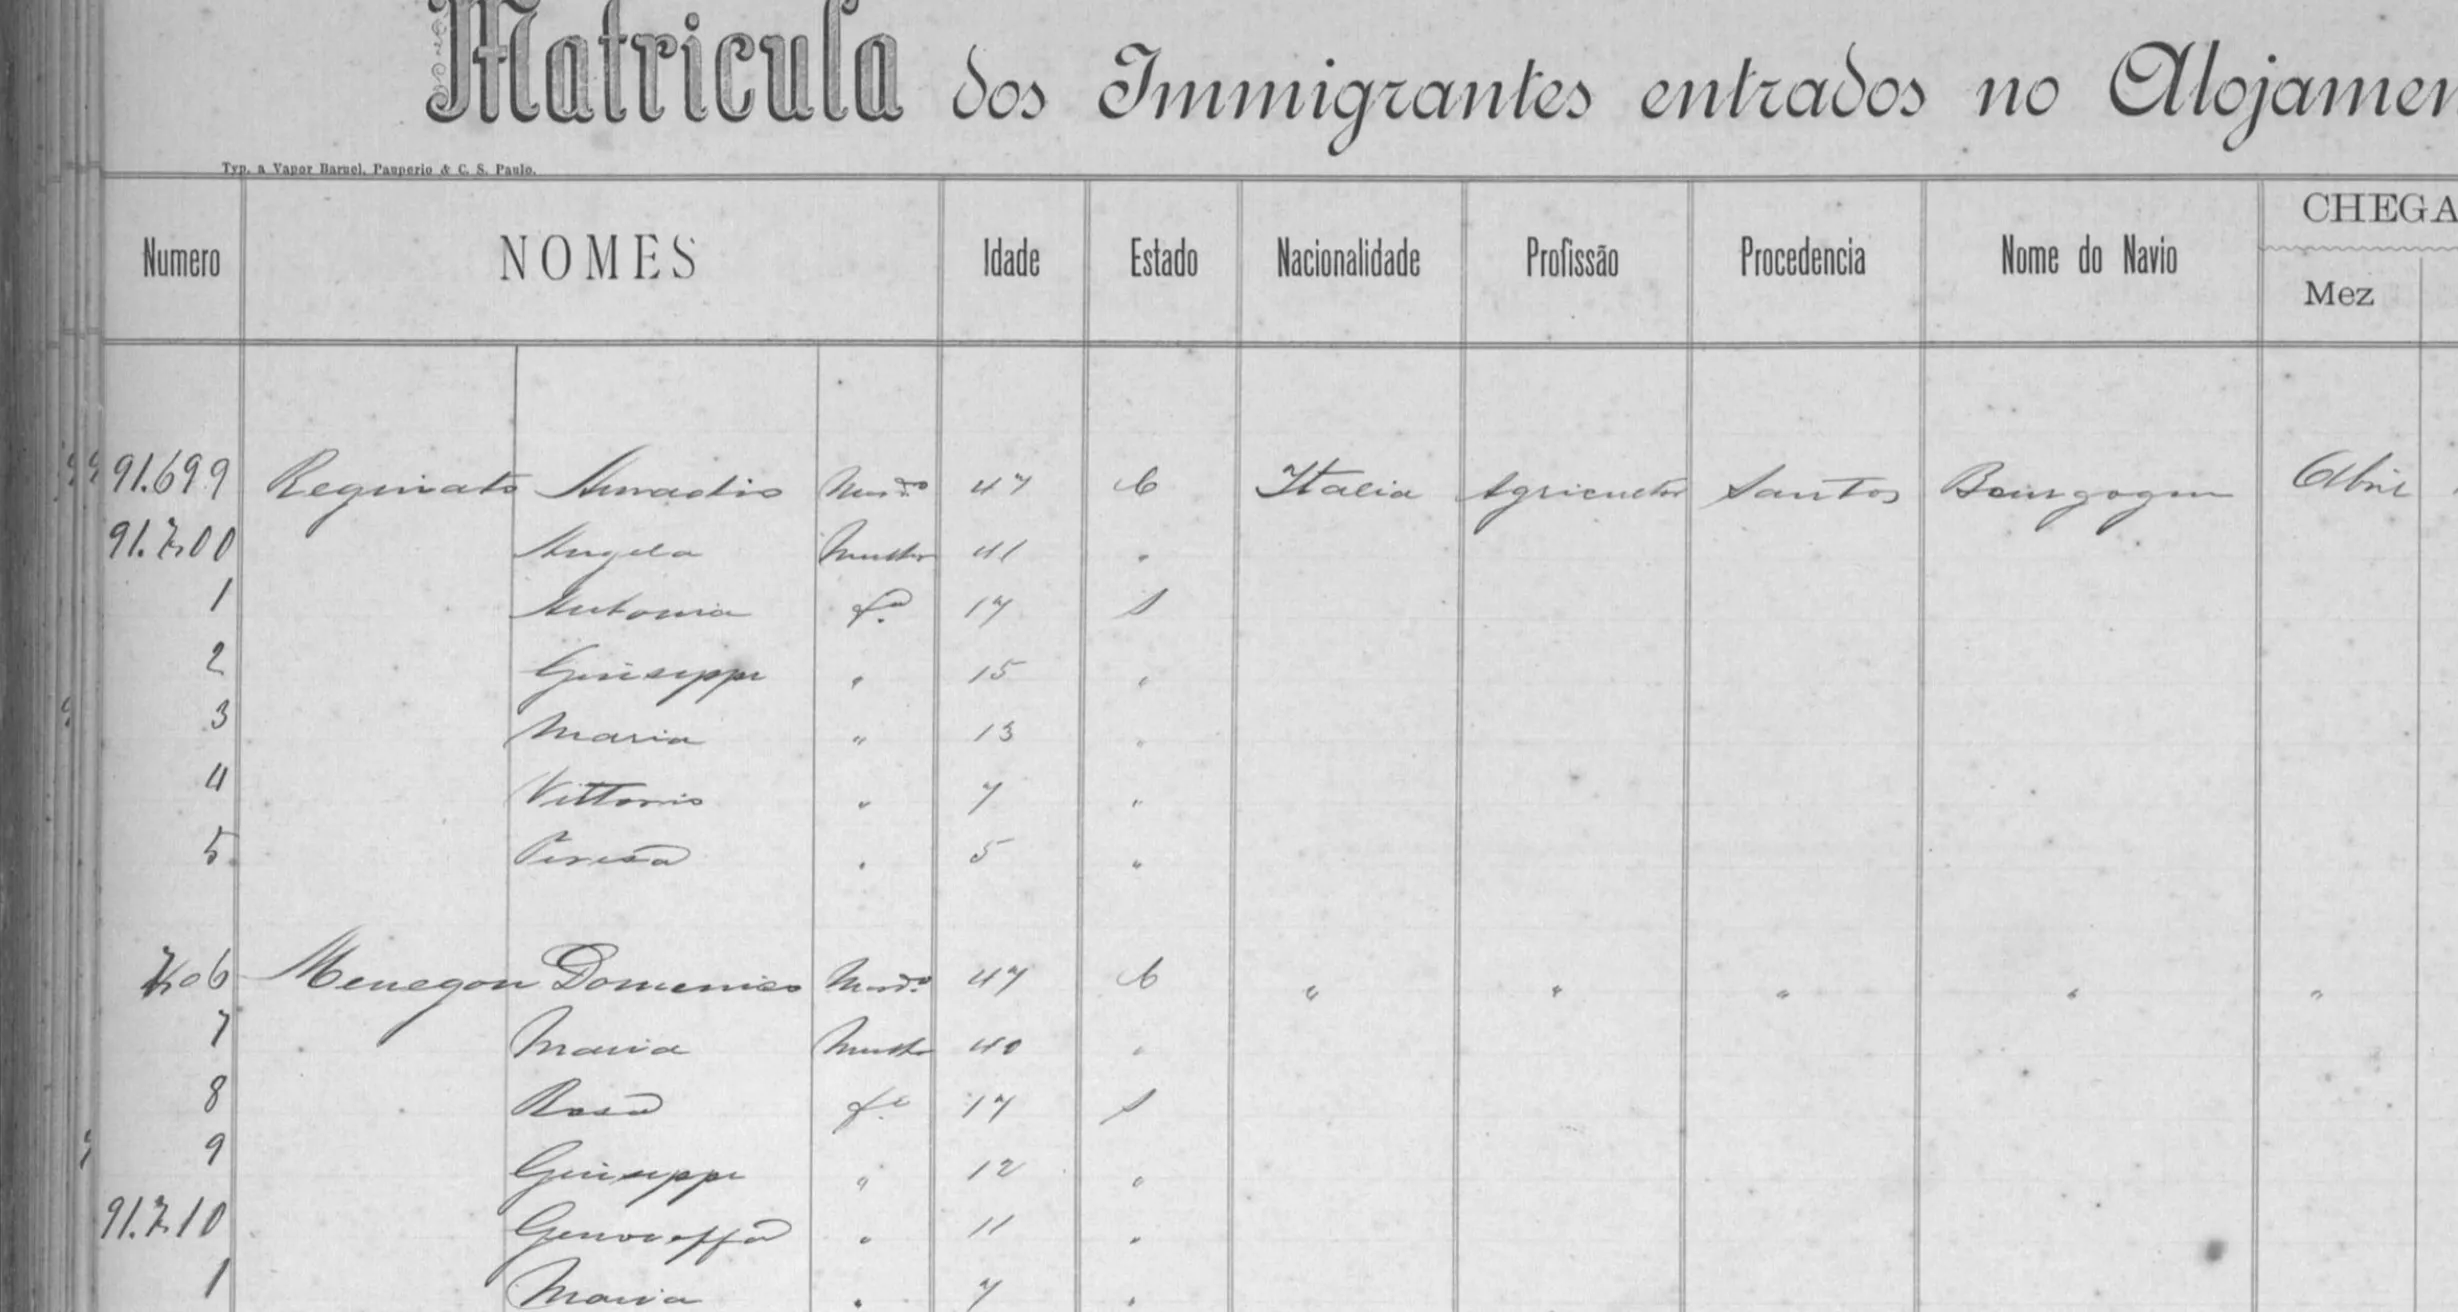 Matricula dos Immigrantes entrados no Alojamen
Typ. a Vapor Baruel, Pauperio & C. S. Paulo.
Numero NOMES Idade Estado Nacionalidade Profissão Procedencia Nome do Navio CHEGA
Mez
91.699 Reginato Amadio Mardo 47 C Italia Agricultor Santos Bourgogne Abril
91.700 Angela Mulher 41 "
1 Antonia fa 17 S
2 Giuseppe " 15 "
3 Maria " 13 "
4 Vittorio " 7 "
5 Teresa " 5 "
706 Menegon Domenico Mardo 47 C " " " " "
7 Maria Mulher 40 "
8 Rosa fa 17 S
9 Giuseppe " 12 "
91.710 Genoveffa " 11 "
1 Maria " 7 "